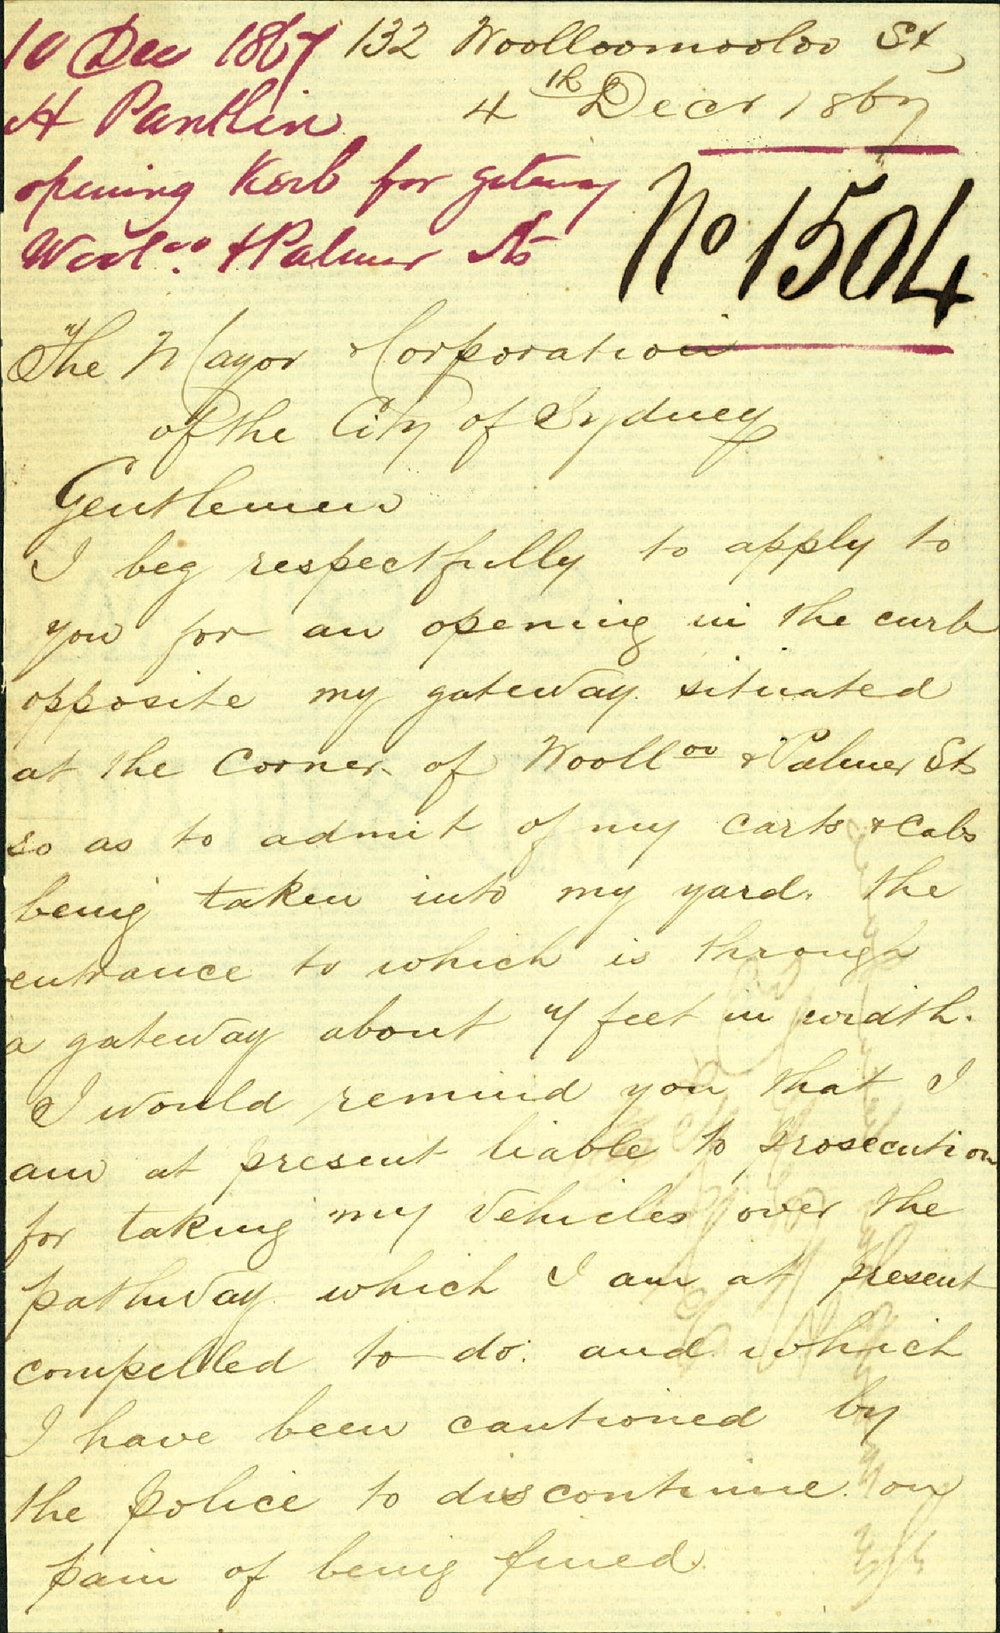 10 Dec 1867
H Pantlin
opening Kerb for gateway
Wool.oo & Palmer Sts
132 Woolloomooloo St,
4th Decr 1867
No 1504
The Mayor & Corporation
of the City of Sydney
Gentlemen
I beg respectfully to apply to
you for an opening in the curb
opposite my gateway situated
at the Corner of Woolloo & Palmer Sts
so as to admit of my carts & cabs
being taken into my yard. the
entrance to which is through
a gateway about 7 feet in width.
I would remind you that I
am at present liable to prosecution
for taking my vehicles over the
pathway which I am at present
compelled to do. and which
I have been cautioned by
the police to discontinue on
pain of being fined.